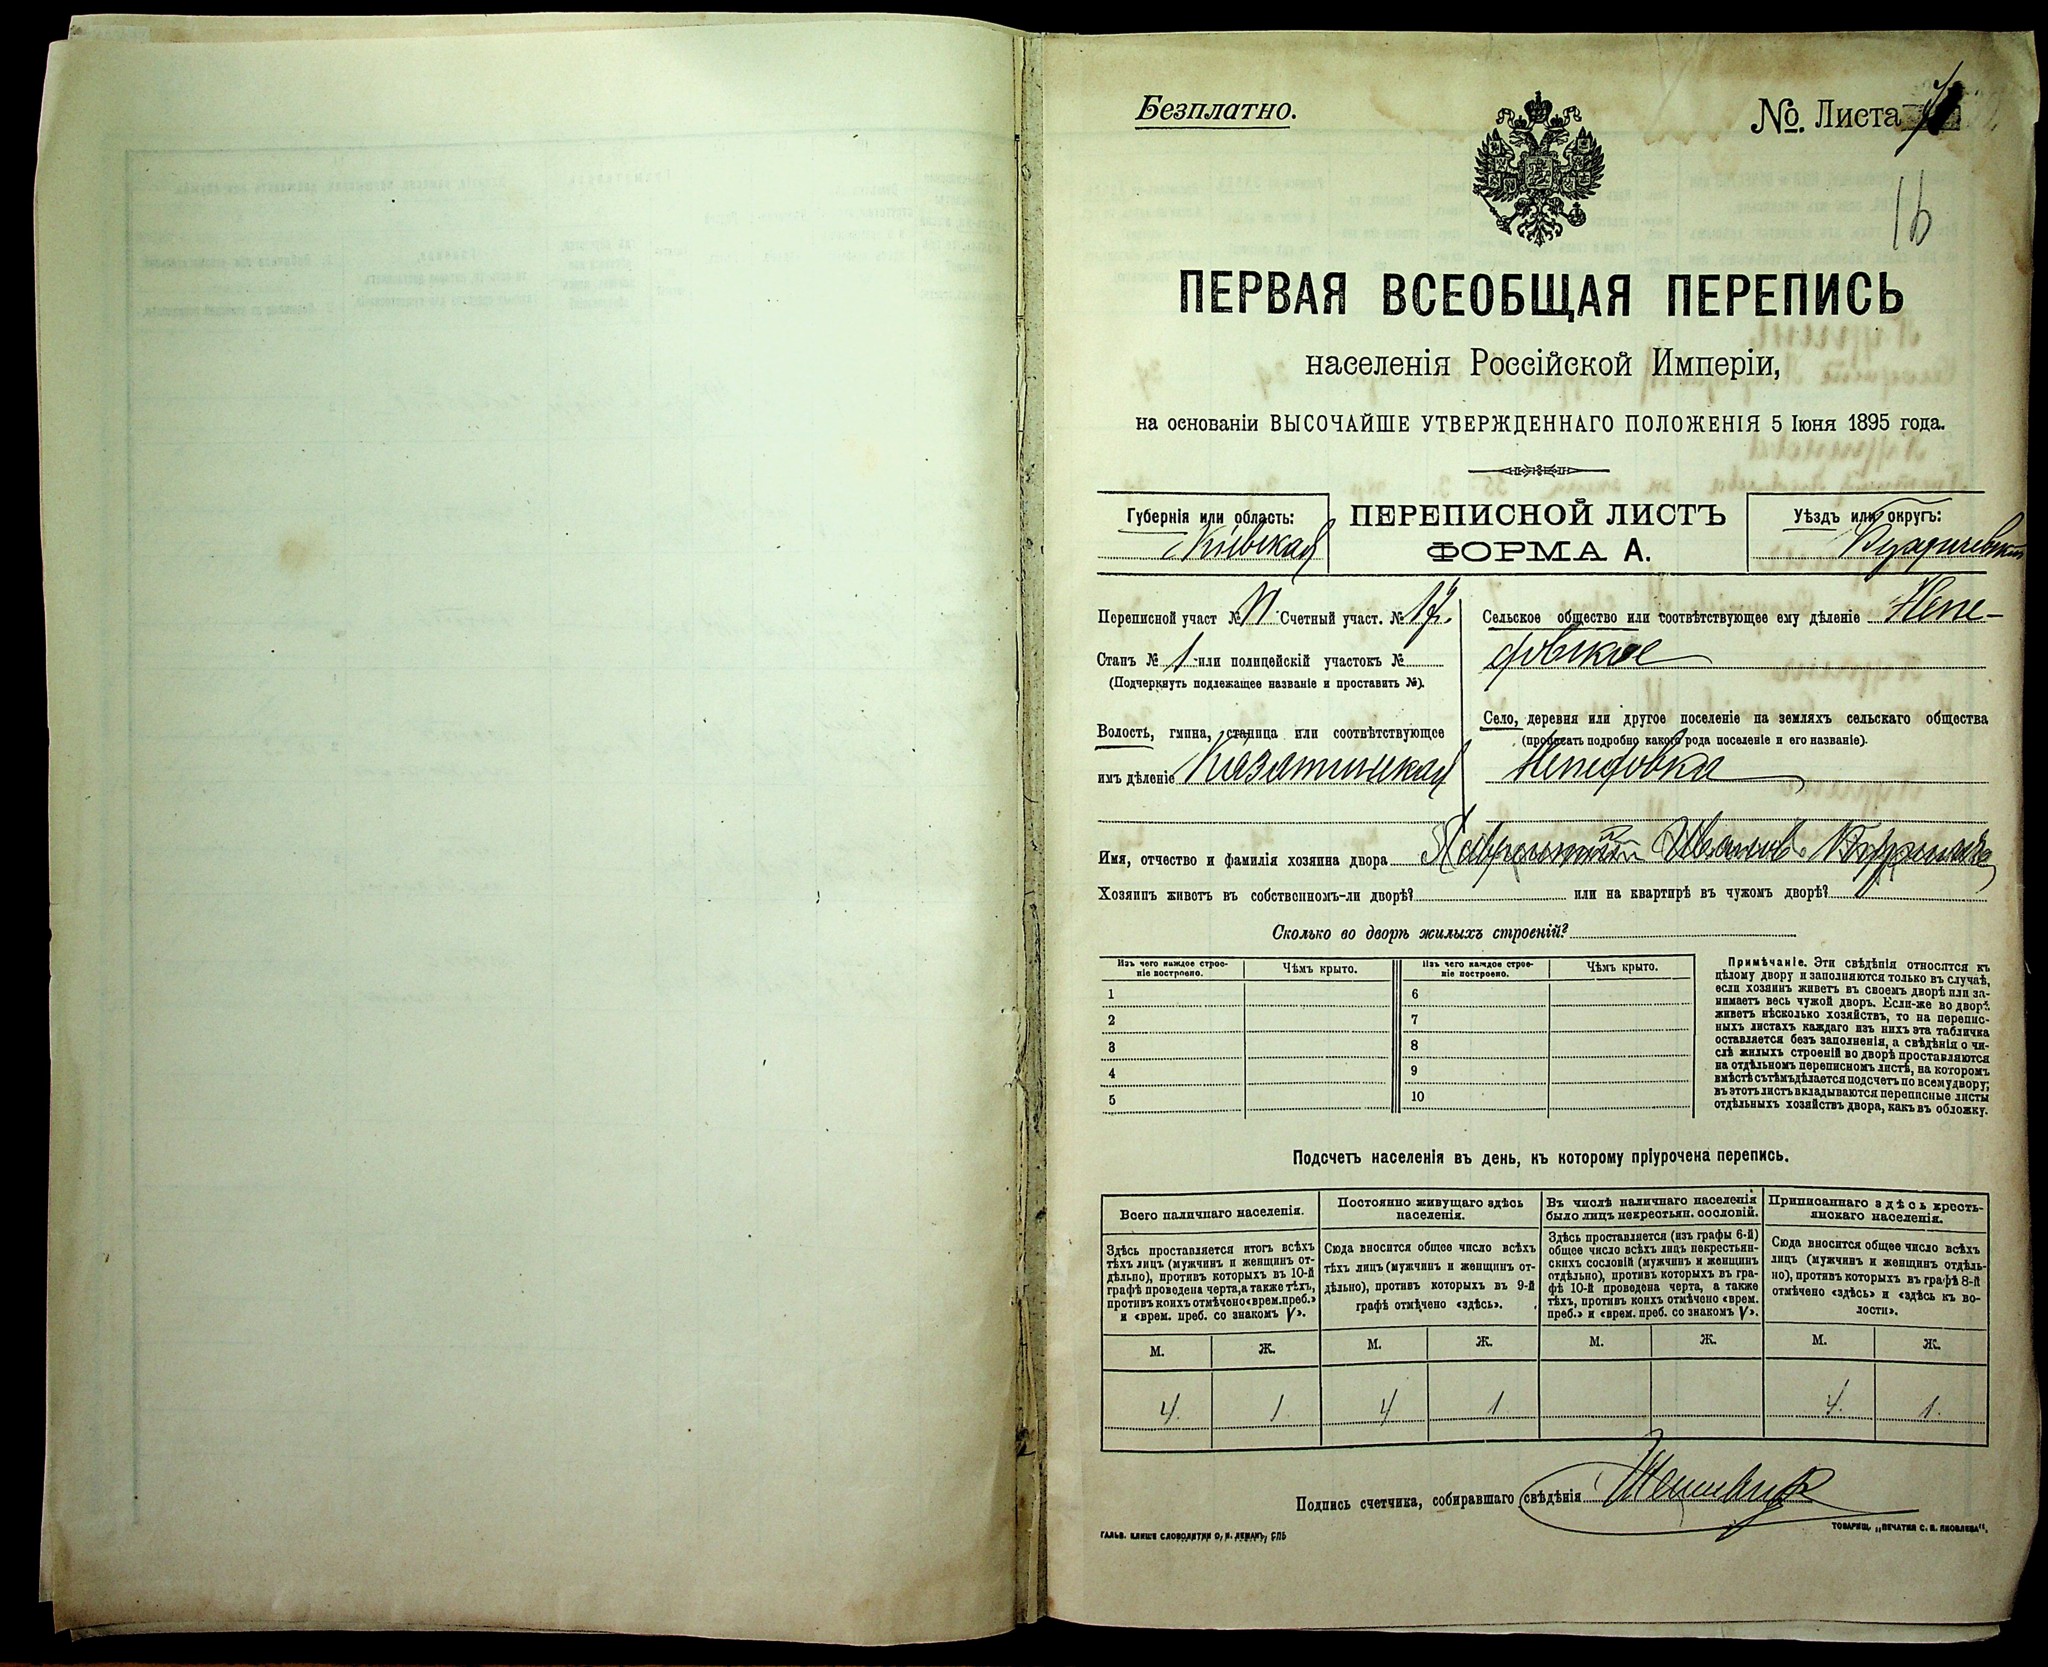 Безплатно.
№. Листа
16
ПЕРВАЯ ВСЕОБЩАЯ ПЕРЕПИСЬ
населенія Россійской Имперіи,
на основаніи ВЫСОЧАЙШЕ УТВЕРЖДЕННАГО ПОЛОЖЕНІЯ 5 Іюня 1895 года.
Губернія или область:
Кіевская
ПЕРЕПИСНОЙ ЛИСТЪ
ФОРМА А.
Уѣздъ или округъ:
Бердичевскій
Переписной участ № Счетный участ. №
Станъ № 1 или полицейскій участокъ №
(Подчеркнуть подлежащее названіе и проставить №).
Волость, гмина, станица или соотвѣтствующее
имъ дѣленіе Казатинская
Сельское общество или соотвѣтствующее ему дѣленіе Непе-
довское
Село, деревня или другое поселеніе на земляхъ сельскаго общества
(прописать подробно какого рода поселеніе и его названіе).
Непедовка
Имя, отчество и фамилія хозяина двора Лаврентій Ивановъ
Хозяинъ живетъ въ собственномъ-ли дворѣ? или на квартирѣ въ чужомъ дворѣ?
Сколько во дворѣ жилыхъ строеній?
Изъ чего каждое строе-
ніе построено.
Чѣмъ крыто.
Изъ чего каждое строе-
ніе построено.
Чѣмъ крыто.
1 6
2 7
3 8
4 9
5 10
Примѣчаніе. Эти свѣдѣнія относятся къ
цѣлому двору и заполняются только въ случаѣ,
если хозяинъ живетъ въ своемъ дворѣ или за-
нимаетъ весь чужой дворъ. Если-же во дворѣ
живетъ нѣсколько хозяйствъ, то на перепис-
ныхъ листахъ каждаго изъ нихъ эта табличка
оставляется безъ заполненія, а свѣдѣнія о чи-
слѣ жилыхъ строеній во дворѣ проставляются
на отдѣльномъ переписномъ листѣ, на которомъ
вмѣстѣ съ тѣмъ дѣлается подсчетъ по всему двору;
въ этотъ листъ вкладываются переписные листы
отдѣльныхъ хозяйствъ двора, какъ въ обложку.
Подсчетъ населенія въ день, къ которому пріурочена перепись.
Всего наличнаго населенія.
Здѣсь проставляется итогъ всѣхъ
тѣхъ лицъ (мужчинъ и женщинъ от-
дѣльно), противъ которыхъ въ 10-й
графѣ проведена черта, а также тѣхъ,
противъ коихъ отмѣчено «врем. преб.»
и «врем. преб. со знакомъ V».
М. Ж.
4. 1
Постоянно живущаго здѣсь
населенія.
Сюда вносится общее число всѣхъ
тѣхъ лицъ (мужчинъ и женщинъ от-
дѣльно), противъ которыхъ въ 9-й
графѣ отмѣчено «здѣсь».
М. Ж.
4 1
Въ числѣ наличнаго населенія
было лицъ некрестьян. сословій.
Здѣсь проставляется (изъ графы 6-й)
общее число всѣхъ лицъ некрестьян-
скихъ сословій (мужчинъ и женщинъ
отдѣльно), противъ которыхъ въ гра-
фѣ 10-й проведена черта, а также
тѣхъ, противъ коихъ отмѣчено «врем.
преб.» и «врем. преб. со знакомъ V».
М. Ж.
Приписаннаго здѣсь кресть-
янскаго населенія.
Сюда вносится общее число всѣхъ
лицъ (мужчинъ и женщинъ отдѣль-
но), противъ которыхъ въ графѣ 8-й
отмѣчено «здѣсь» и «здѣсь къ во-
лости».
М. Ж.
4. 1.
Подпись счетчика, собиравшаго свѣдѣнія
ГАЛЬВ. КЛИШЕ СЛОВОЛИТНИ О. И. ЛЕМАНЪ, СПБ
ТОВАРИЩ. „ПЕЧАТНЯ С. П. ЯКОВЛЕВА“.